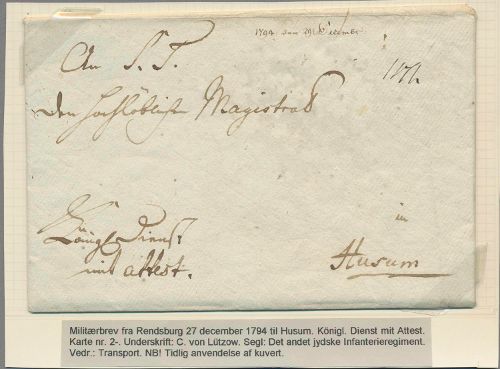 1794 den 29 December
An S. T.
den hochlöblichen Magistrat
Königl. Dienst
mit attest.
in
Husum
Militærbrev fra Rendsburg 27 december 1794 til Husum. Königl. Dienst mit Attest.
Karte nr. 2-. Underskrift: C. von Lützow. Segl: Det andet jydske Infanterieregiment.
Vedr.: Transport. NB! Tidlig anvendelse af kuvert.